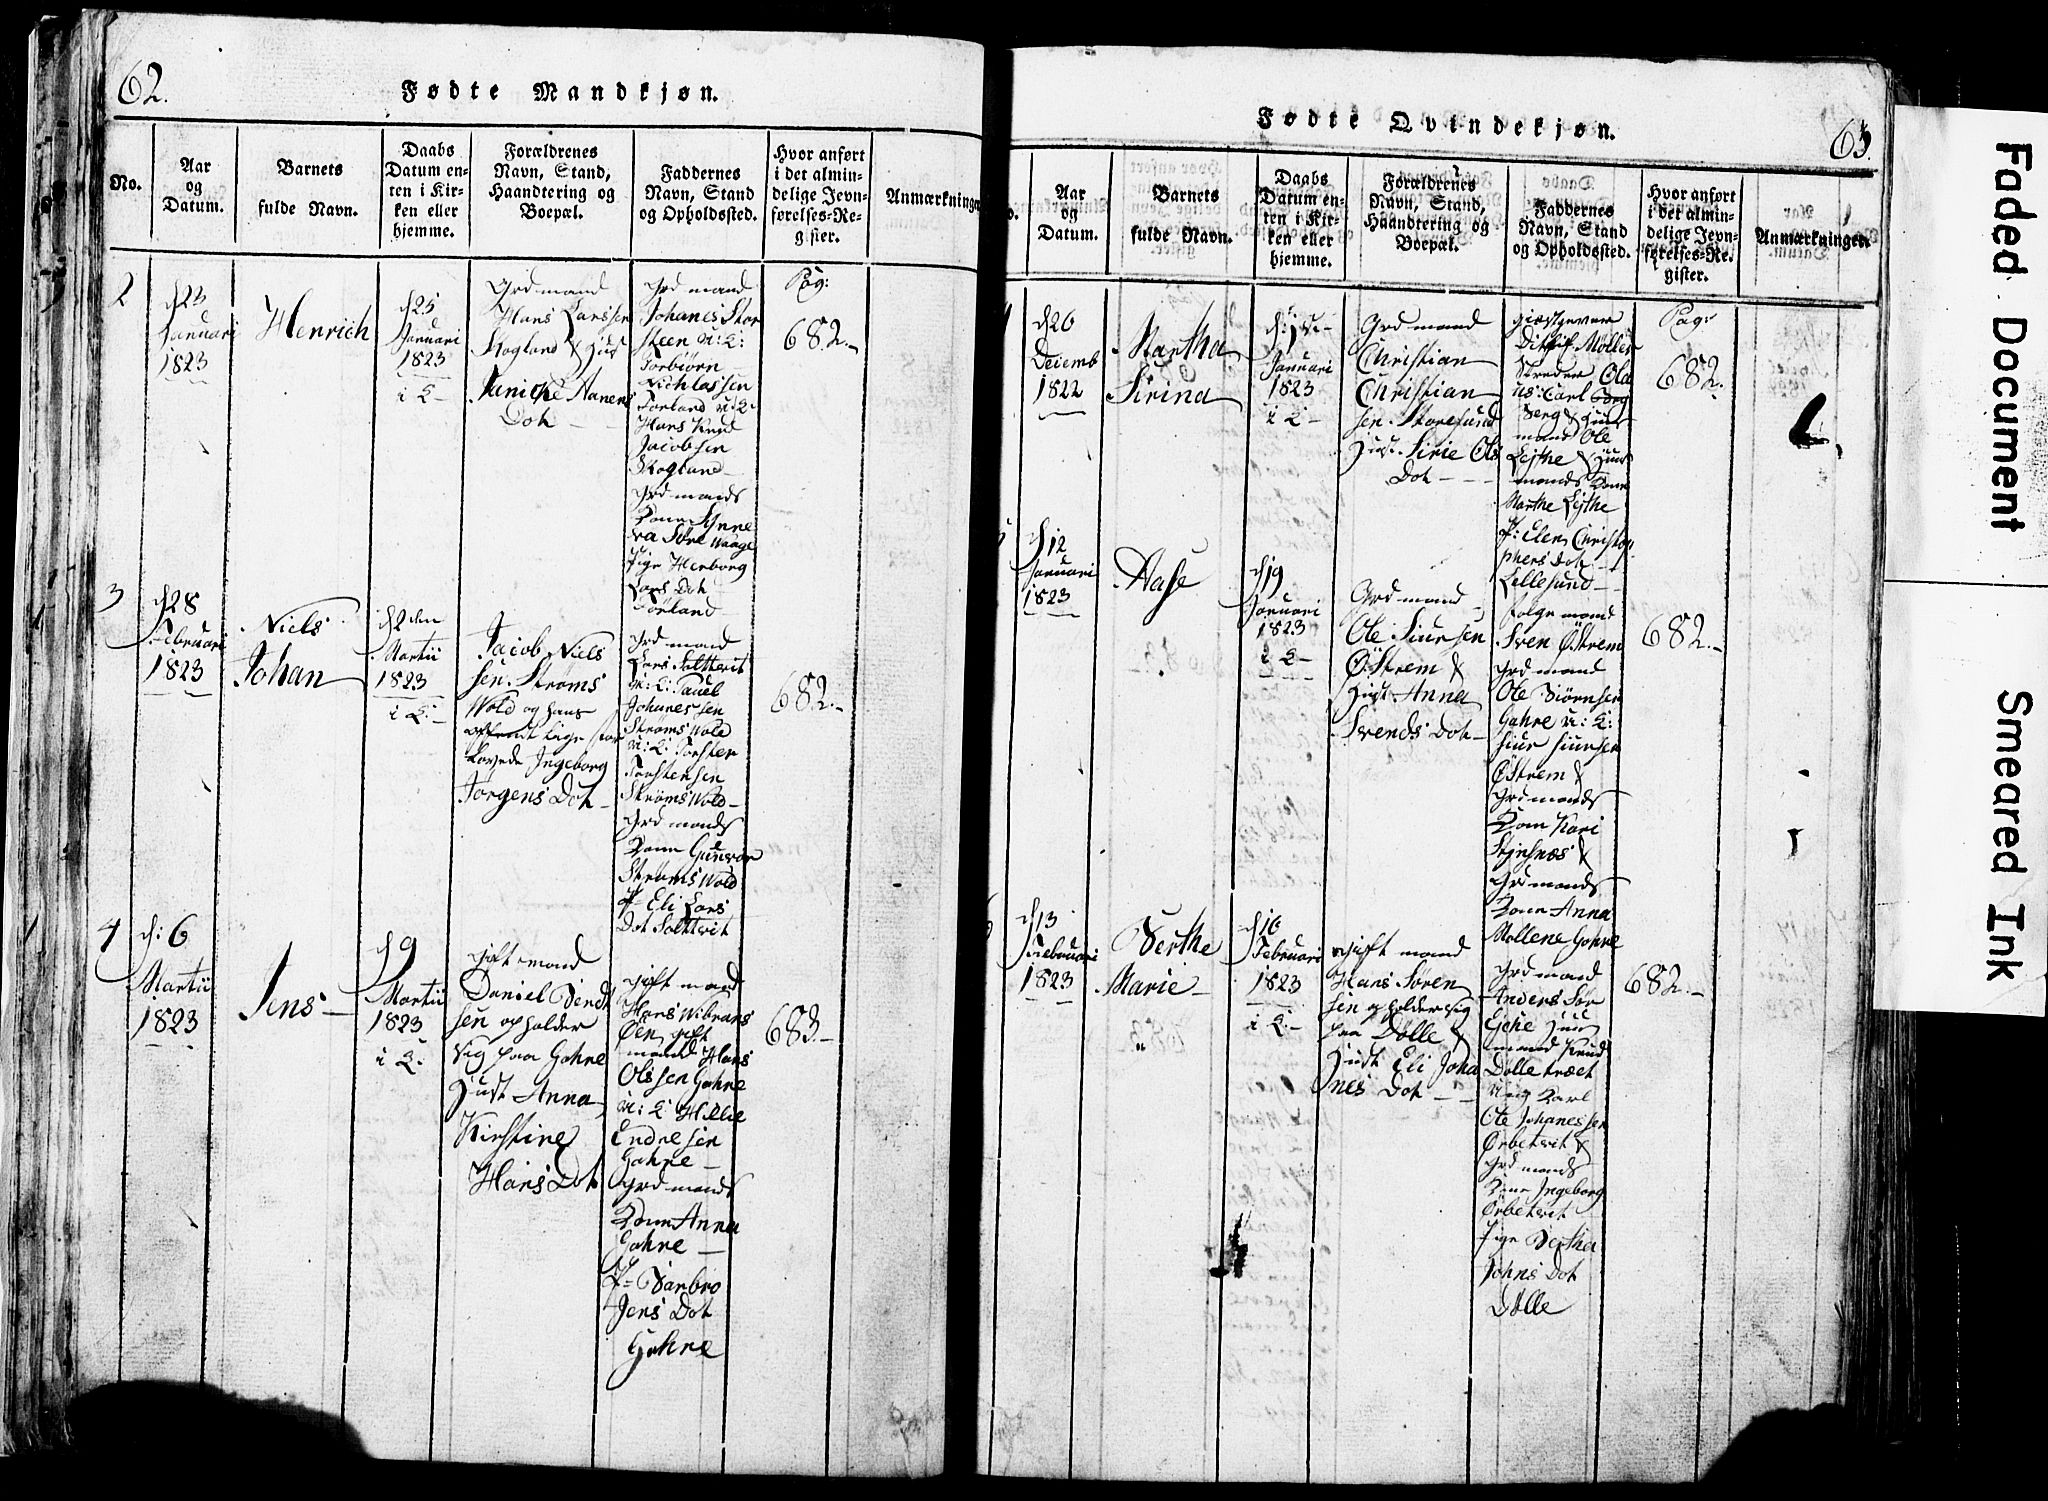 62.
Fødte Mandkjøn.
No.
Aar
og
Datum.
Barnets
fulde Navn.
Daabs
Datum en-
ten i Kir-
ken eller
hjemme.
Forældrenes
Navn, Stand,
Haandtering og
Boepæl.
Faddernes
Navn, Stand
og Opholdssted.
Hvor anført
i det almin-
delige Jevn-
førelses-Re-
gister.
Anmærkninger
2
d 23
Januari
1823
Henrich
d 25
Januari
1823
i K -
Grdmand
Hans Larssen
Skogland & Hust
Hanens
Dot
Grdmand
Johanes Stor
Steen U: K:
Torbiørn
Nichlassen
Førland U: K
Hans Knud
Jacobsen
Skogland
Grdmands
Kone Synne
va Søre Waage
Pige Herborg
Lars Dot
Førland
Pag:
682.-
3
d 28
Februari
1823
Niels
Johan
d 2den
Martii
1823
i K:-
Jacob Niels
sen Strøms
Wold og hans
lige for
lovede Ingeborg
Jørgens Dot
Grdmand
Lars Saltvit
U: K: Pauel
Johanessen
Strøms Wold
U: K: Torsten
Torstensen
Strøms Wold
Grdmands
Kone Gunvor
Strøms Wold
P- Eli Lars
Dot Saltvit
682.-
4
d: 6
Martii
1823
Jens
d 9
Martii
1823
i K:
gift mand
Daniel Bendt
sen opholder
sig paa Gahre
Hust Anna
Kirstine
Hans Dot
gift mand
Hans Wibrans
Øen gift
mand Hans
Olssen Gahre
U: K: Hellie
Endresen
Gahre
Grdmands
Kone Anna
Gahre
P- Barbro
Jens Dot
Gahre
683.-
63.
Fødte Qvindekjøn.
Aar
og
Datum.
Barnets
fulde Navn.
Daabs
Datum en-
ten i Kir-
ken eller
hjemme.
Forældrenes
Navn, Stand,
Haandtering og
Boepæl.
Faddernes
Navn, Stand
og Opholdssted.
Hvor anført
i det almin-
delige Jevn-
førelses-Re-
gister.
Anmærkninger.
d 26
Decemb
1822
Martha
Sirina
Januari
1823
i K -
Grdmand
Christian
Christian
sen Storesund
Hust Sirie Ols
Dot
giæstgever
Ditlef Møller
Ola
Carl
berg & Huus
mand Ole
Lejthe & Huus
mands Kone
Marthe Lejthe
P: Elen Christop
phers Dot
Lellesund
Pag:
682.
d 12
Januari
1823
Aase
d 19
Januari
1823
i K -
Grdmand
Ole Siursen
Østrem &
Hust Anna
Svends Dot
folgemand
Sven Østrem
Grdmand
Ole Biørnsen
Gahre U: K:
Siur Siursen
Østrem &
Grdmands
Kone Kari
Stjnsnæs &
Grdmands
Kone Anna
Mallene Gahre
682.-
d 13
Februari
1823
Berthe
Marie
d 16
Februari
1823
i K:-
gift mand
Hans Søren
sen opholder sig
paa Dølle &
Hust Eli Joha
nes Dot
Grdmand
Anders Sør
Ejche Huus
mand Knud
Dølle træet
Ung Karl
Ole Johanessen
Ørbekvit &
Grdmands
Kone Ingeborg
Ørbekvit
Pige Bertha
Johns Dot
Dølle
682.-
Faded Document
Smeared Ink